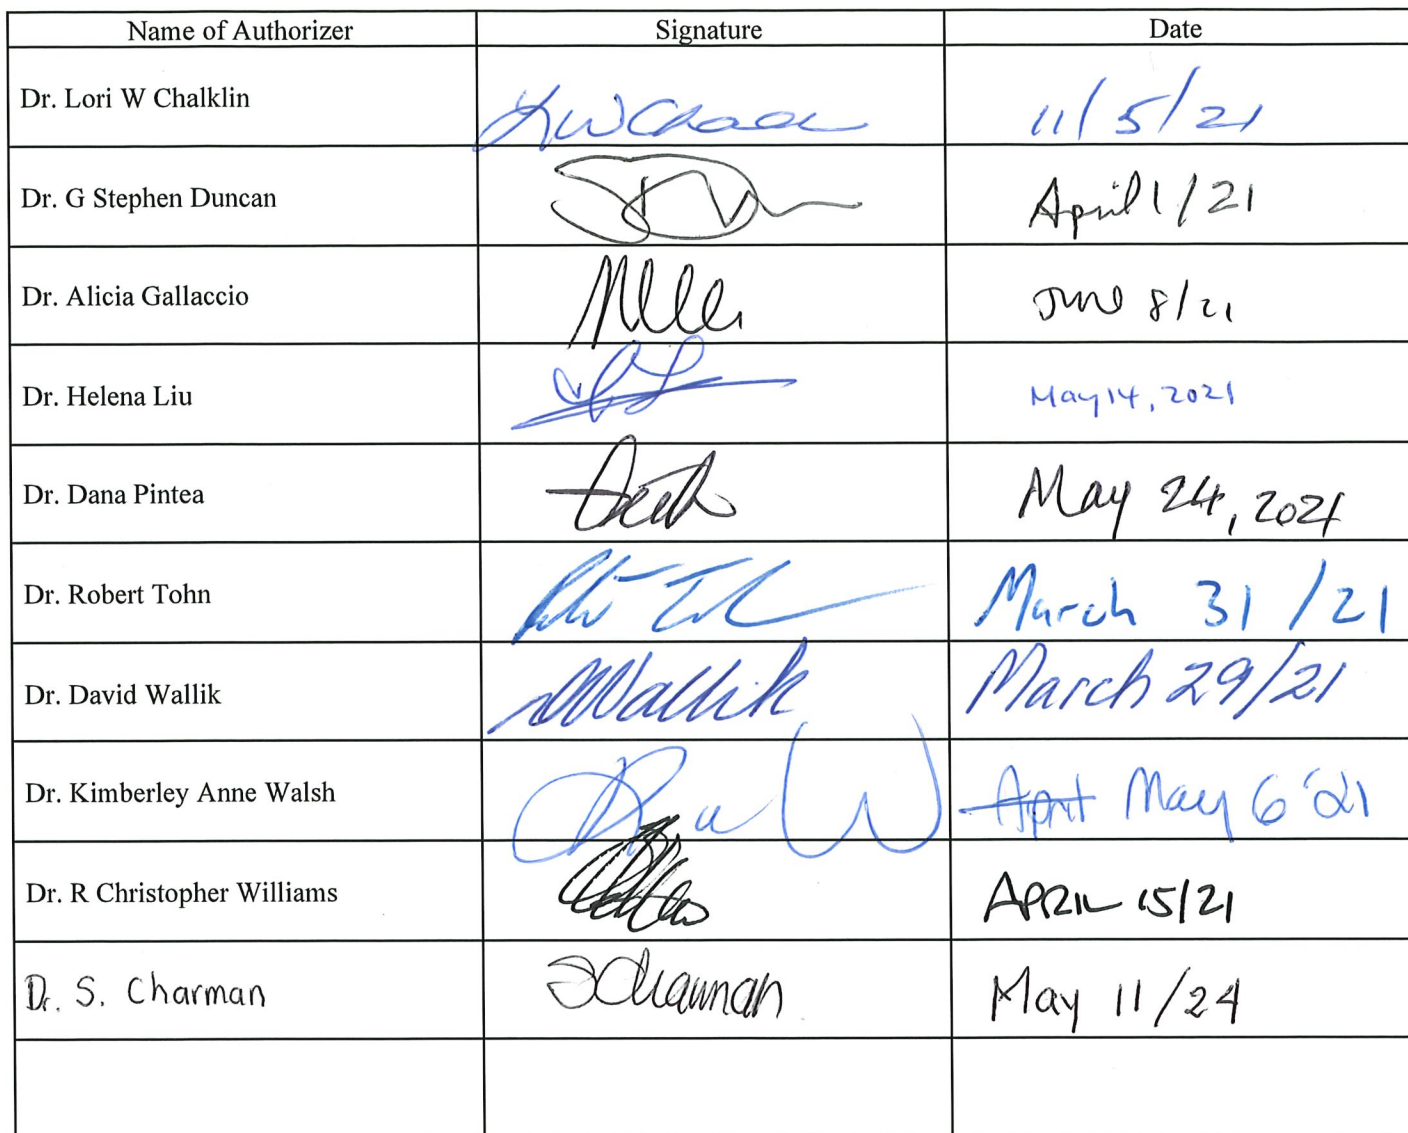 Name of Authorizer Signature Date
Dr. Lori W Chalklin 11/5/21
Dr. G Stephen Duncan April 1/21
Dr. Alicia Gallaccio June 8/21
Dr. Helena Liu May 14, 2021
Dr. Dana Pintea May 24, 2021
Dr. Robert Tohn March 31/21
Dr. David Wallik Wallik March 29/21
Dr. Kimberley Anne Walsh April May 6 '21
Dr. R Christopher Williams APRIL 15/21
Dr. S. Charman SCharman May 11/24